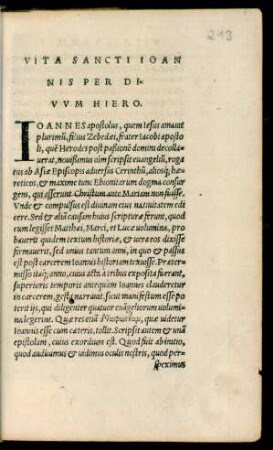 213
VITA SANCTI IOAN
NIS PER DI-
VVM HIERO.
IOANNES apostolus, quem Iesus amauit
plurimũ, filius Zebedei, frater Iacobi aposto
li, quẽ Herodes post passionẽ domini decolla-
uerat, nouissimus oĩm scripsit euangeliũ, roga
tus ab Asiæ Episcopis aduersus Cerinthũ, aliosq; hæ-
reticos, & maxime tunc Ebionitarum dogma consur-
gens, qui asserunt Christum ante Mariam non fuisse.
Vnde & compulsus est diuinam eius natiuitatem edi
cere. Sed & aliã causam huius scripturæ ferunt, quod
cum legisset Matthæi, Marci, et Lucæ volumina, pro
bauerit quidem textum historiæ, et uera eos dixisse
firmauerit, sed unius tantum anni, in quo & passus
est post carcerem Ioannis historiam texuisse. Præter-
misso itaq; anno, cuius acta à tribus exposita fuerant,
superioris temporis antequam Ioannes clauderetur
in carcerem, gesta narrauit. sicut manifestum esse po
terit ijs, qui diligenter quatuor euãgeliorum uolumi-
na legerint. Quæ res etiã
quæ uidetur
Ioannis esse cum cæteris, tollit. Scripsit autem & unã
epistolam, cuius exordium est. Quod fuit ab initio,
quod audiuimus et uidimus oculis nostris, quod per-
speximus